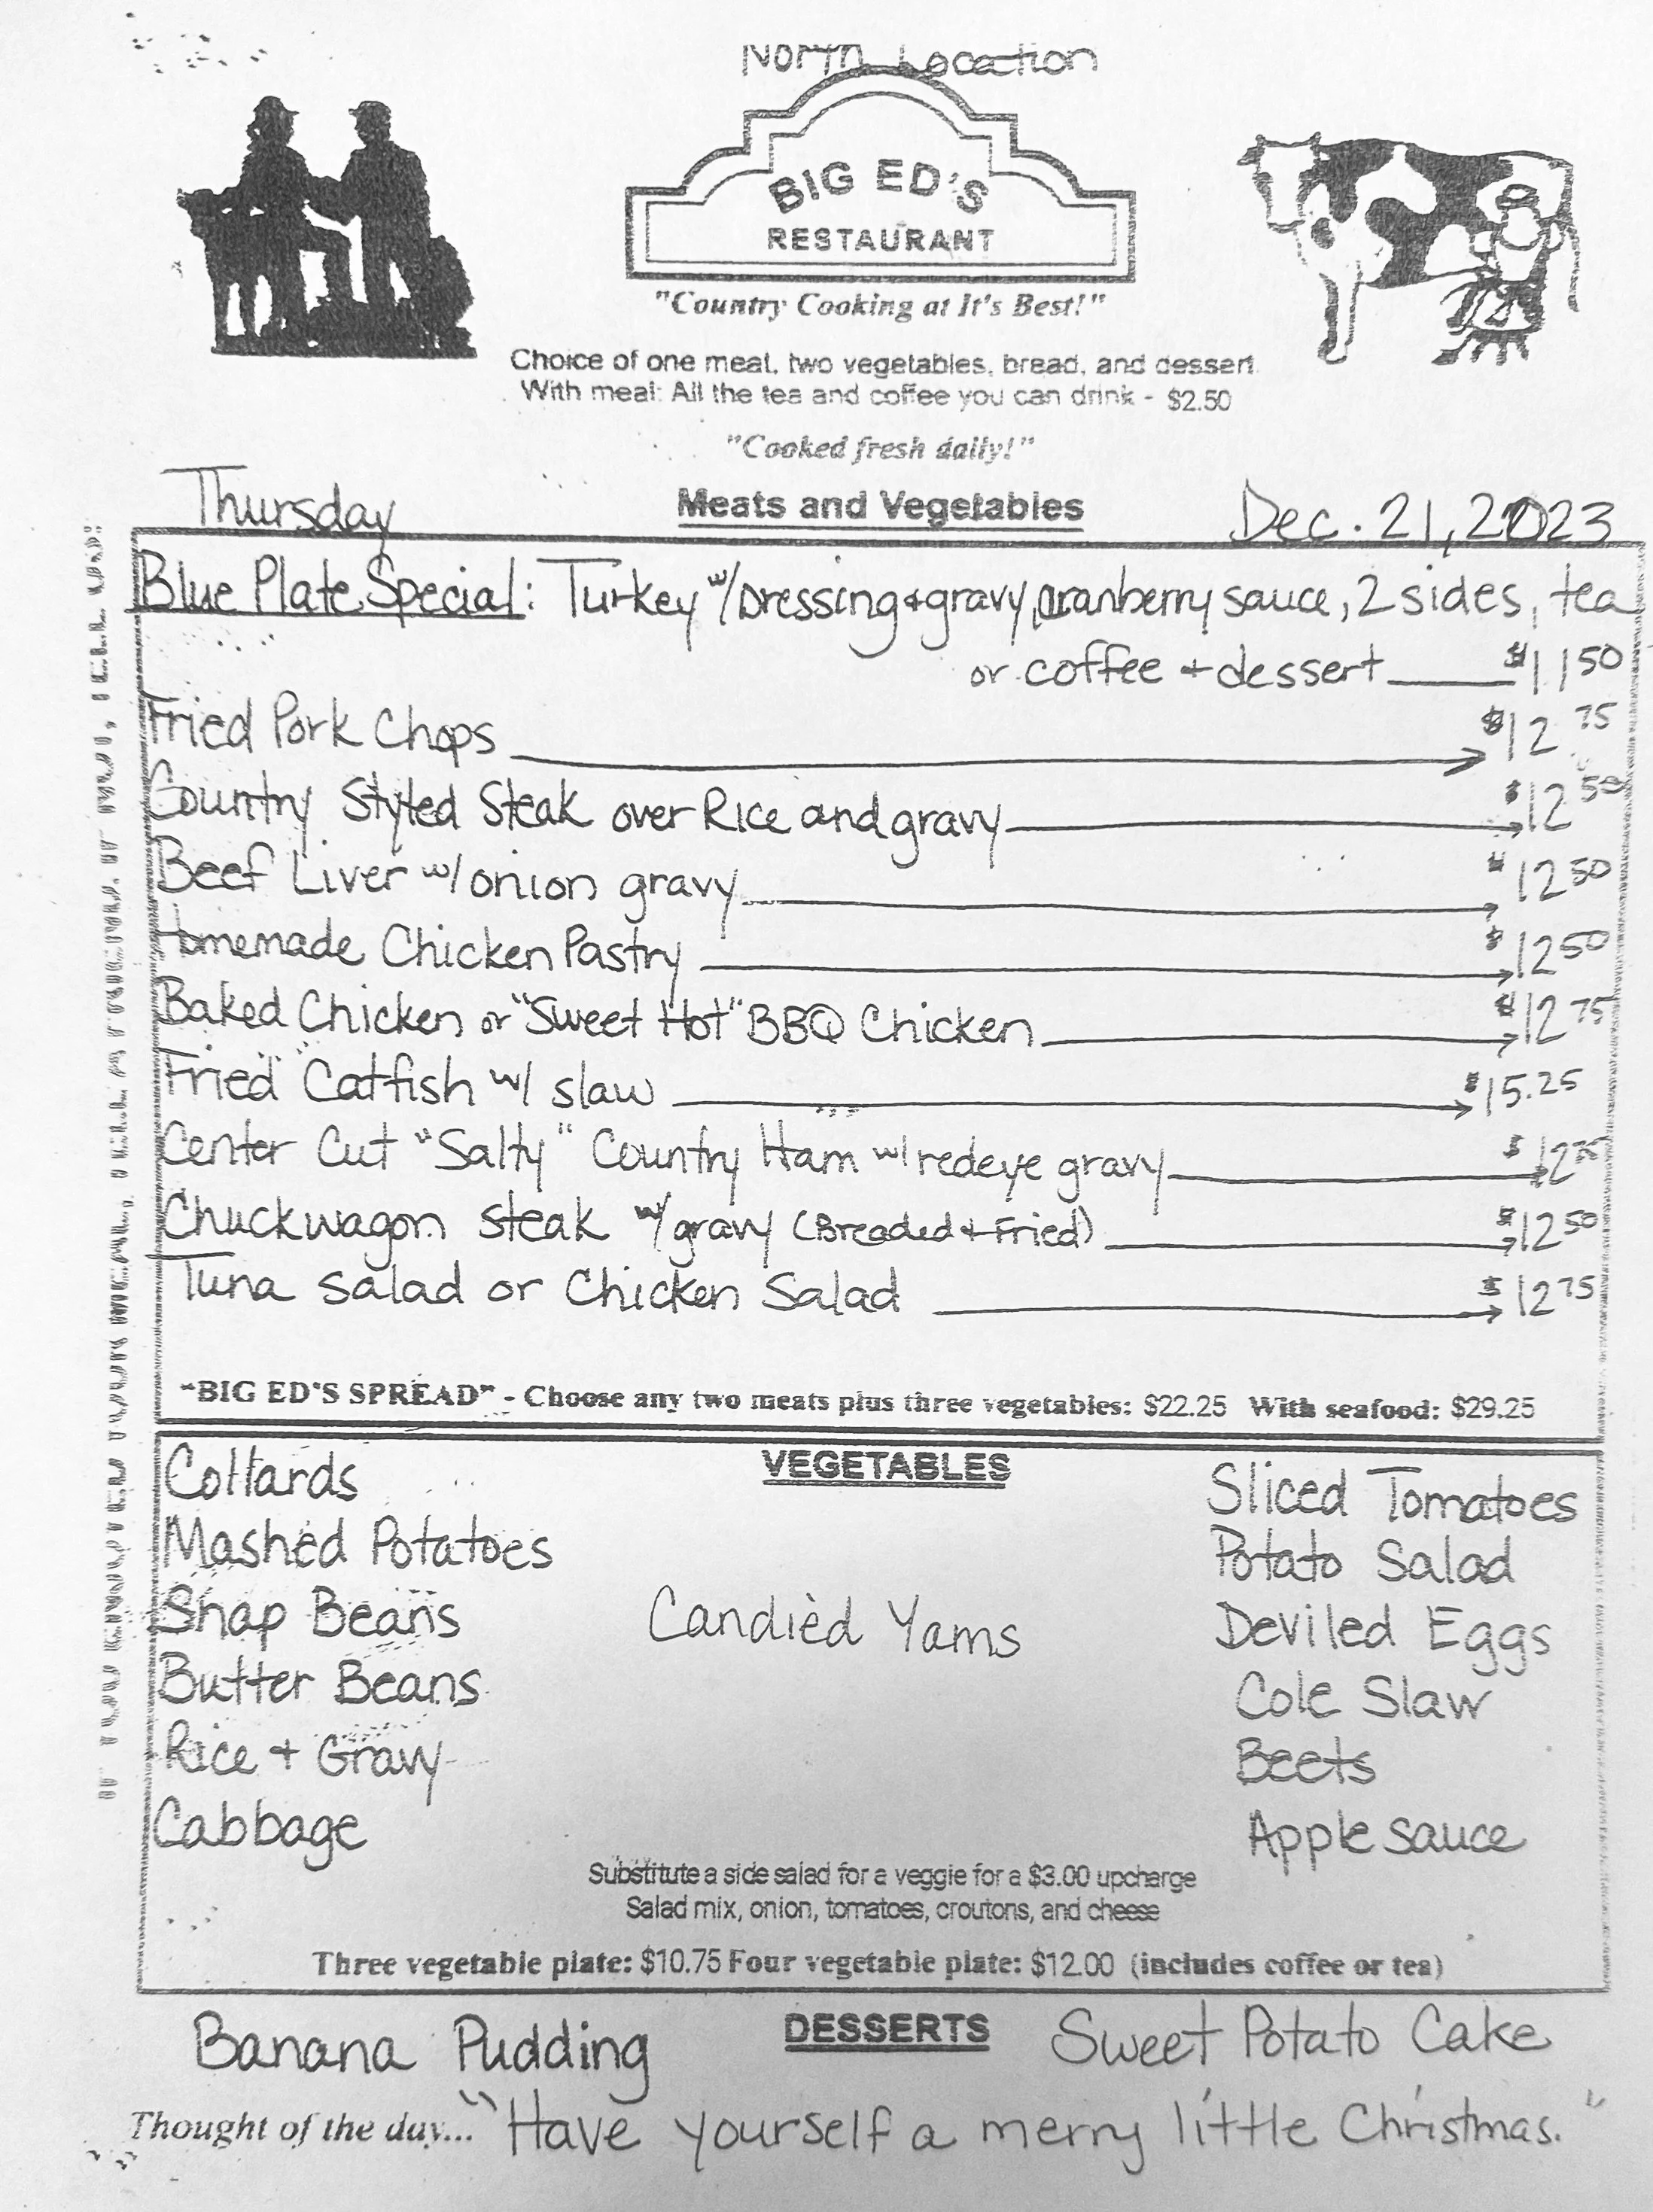 North Location
BIG ED'S
RESTAURANT
"Country Cooking at It's Best!"
Choice of one meat, two vegetables, bread, and dessert.
With meal: All the tea and coffee you can drink - $2.50
"Cooked fresh daily!"
Thursday Meats and Vegetables Dec. 21, 2023
Blue Plate Special: Turkey w/ Dressing + gravy, cranberry sauce, 2 sides, tea
or coffee + dessert $11 50
Fried Pork Chops $12.75
Country Styled Steak over Rice and gravy $12 50
Beef Liver w/ onion gravy $12 50
Homemade Chicken Pastry $12 50
Baked Chicken or "Sweet Hot" BBQ Chicken $12 75
Fried Catfish w/ slaw $15.25
Center Cut "Salty" Country Ham w/ redeye gravy $12 75
Chuckwagon steak w/ gravy (Breaded + Fried) $12 50
Tuna Salad or Chicken Salad $12 75
"BIG ED'S SPREAD" - Choose any two meats plus three vegetables: $22.25 With seafood: $29.25
VEGETABLES
Collards
Mashed Potatoes
Snap Beans
Butter Beans
Rice + Gravy
Cabbage
Candied Yams
Sliced Tomatoes
Potato Salad
Deviled Eggs
Cole Slaw
Beets
Apple sauce
Substitute a side salad for a veggie for a $3.00 upcharge
Salad mix, onion, tomatoes, croutons, and cheese
Three vegetable plate: $10.75 Four vegetable plate: $12.00 (includes coffee or tea)
DESSERTS
Banana Pudding
Sweet Potato Cake
Thought of the day... "Have yourself a merry little Christmas."